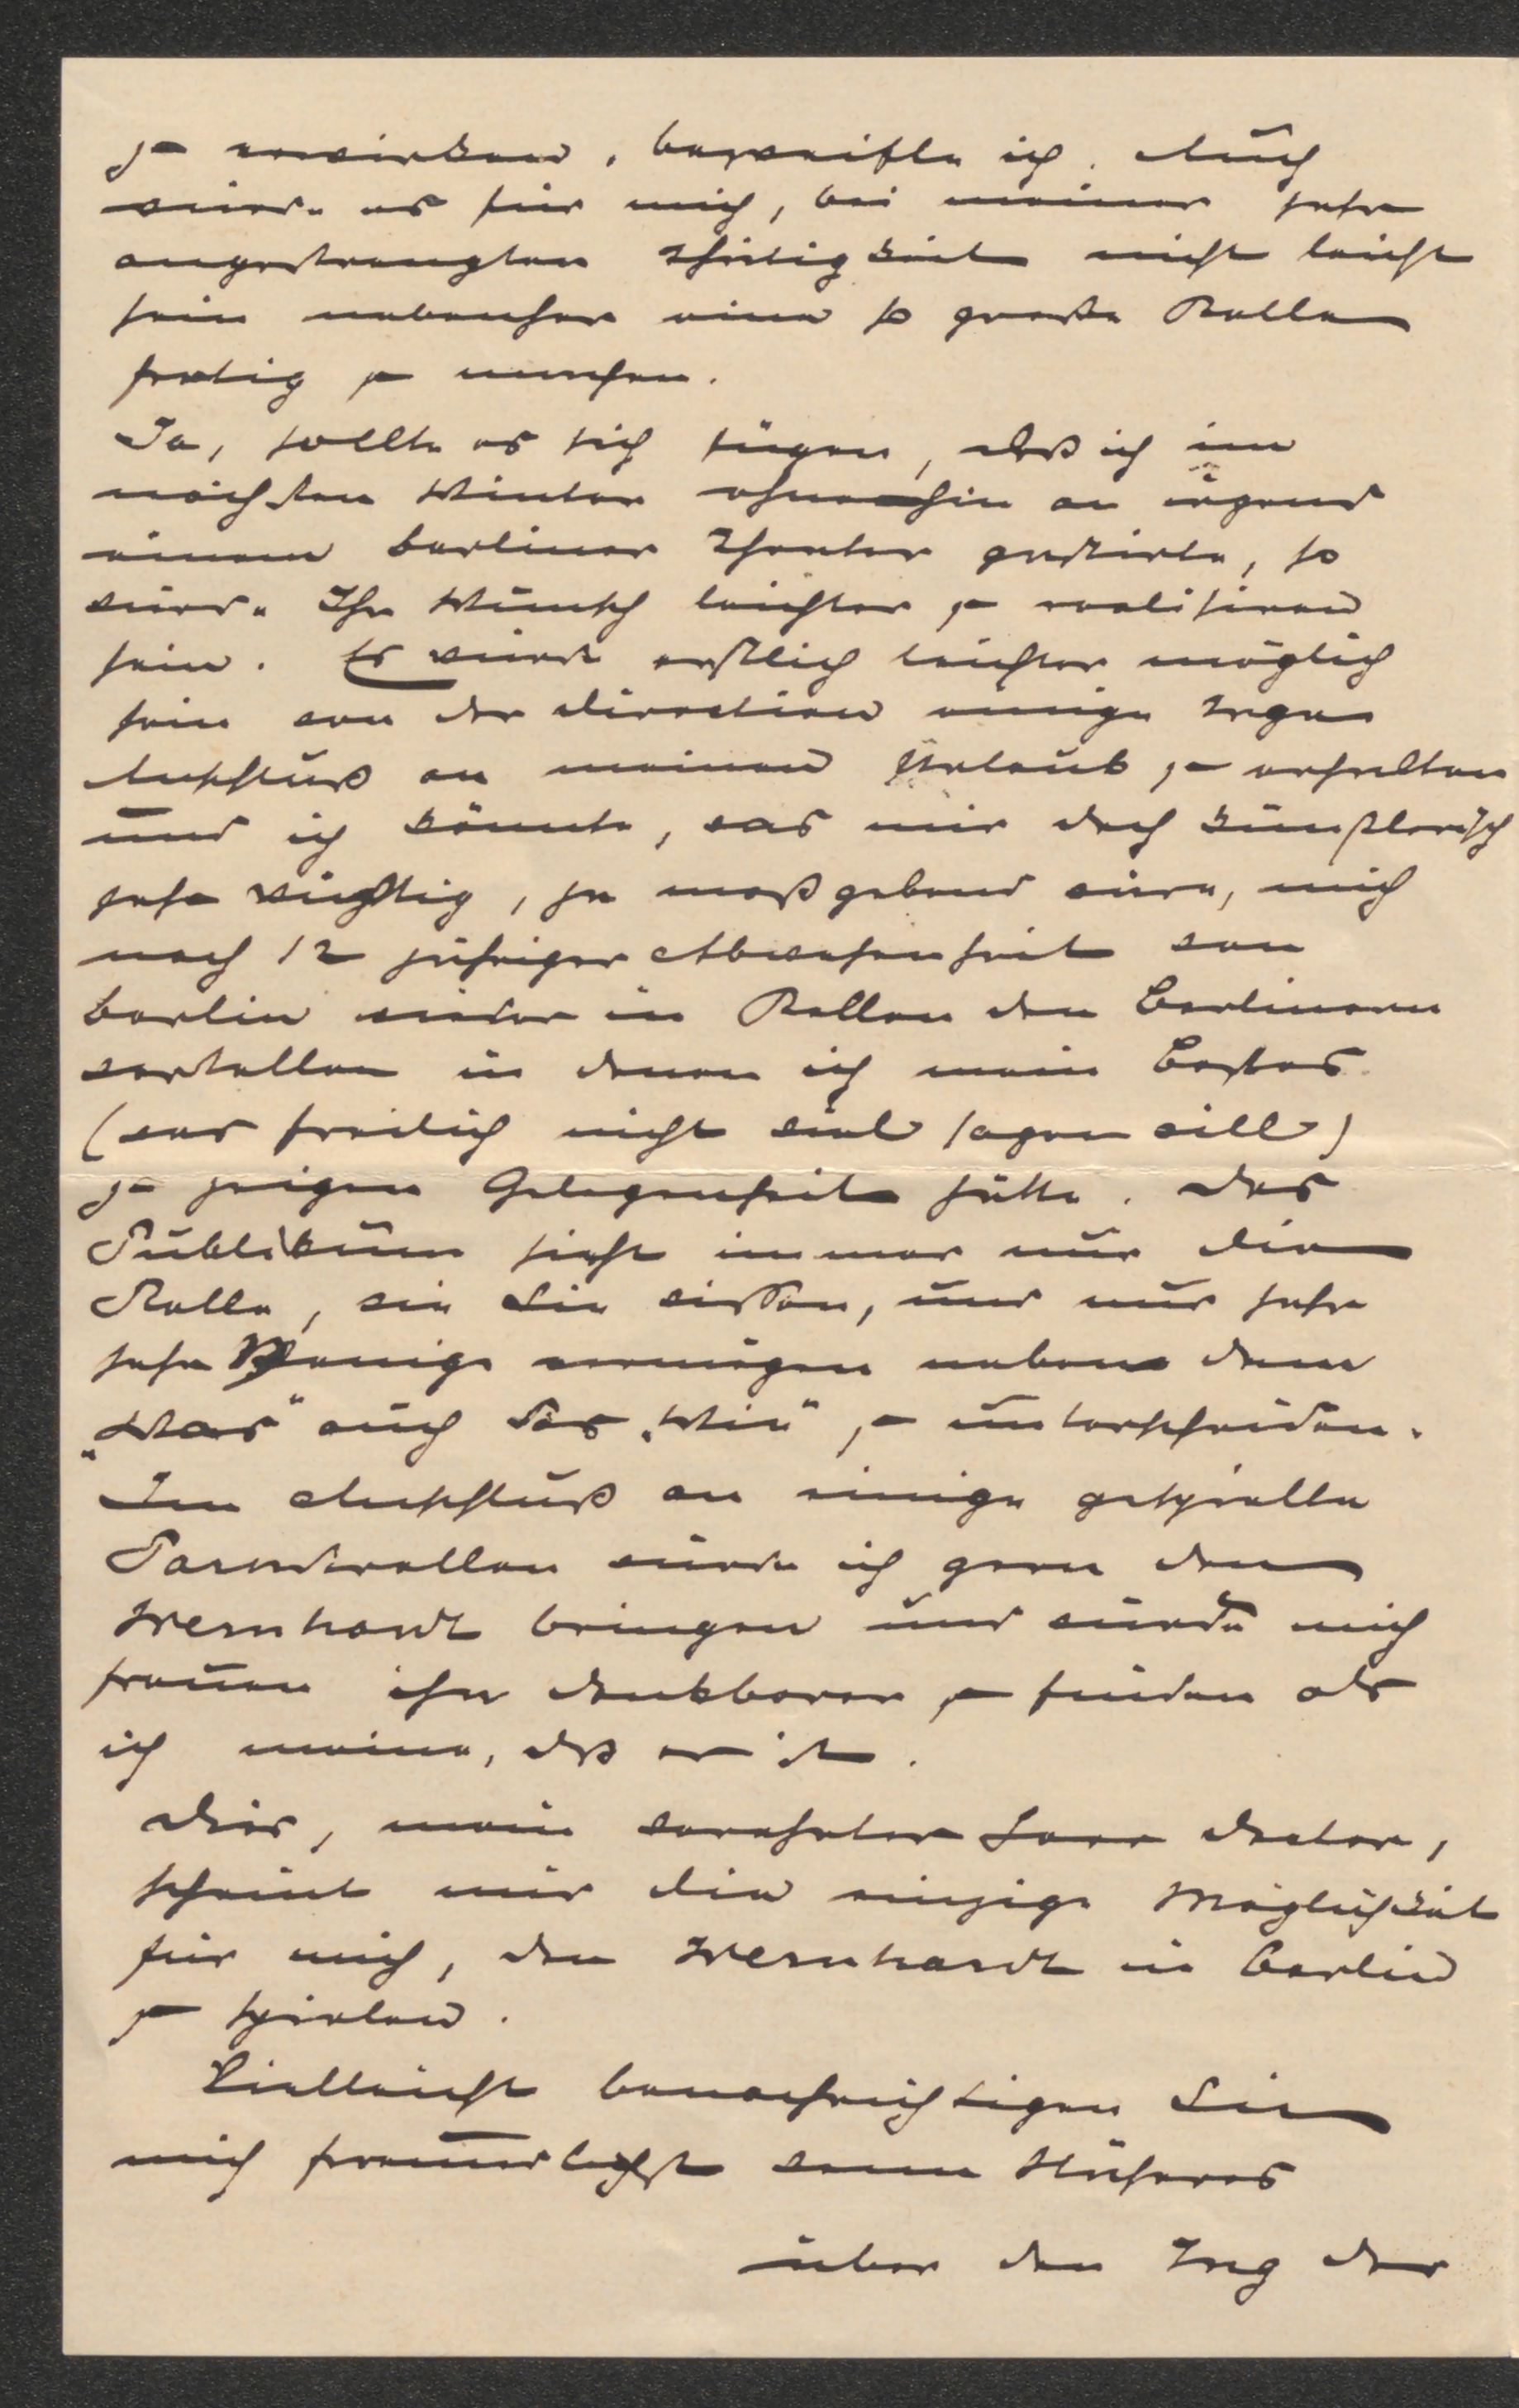 zu erwirken, bezweifle ich. Auch
würde es für mich, bei meiner sehr
angestrengten Thätigkeit nicht leicht
sein nebenher eine so große Rolle
fertig zu machen.
Ja, sollte es sich fügen, daß ich im
nächsten Winter ohnehin an irgend
einem Berliner Theater gastirte, so
würde Ihr Wunsch leichter zu realisiren
sein. Es würde erstlich leichter möglich
sein von der Direction einige Tage
Anschluß an meinen Urlaub zu erhalten
und ich könnte, was mir doch künstlerisch
sehr wichtig, ja maßgebend wäre, mich
nach 12 jähriger Abwesenheit von
Berlin wieder in Rollen den Berlinern
vorstellen in denen ich mein Bestes
(was freilich nicht viel sagen will)
zu zeigen Gelegenheit hätte. Das
Publikum sieht immer nur die
Rolle, wie Sie wissen, und nur sehr
sehr Wenige vermögen neben dem
„Was" auch das „Wie" zu unterscheiden.
Im Anschluß an einige gespielte
Paraderollen würde ich gern den
Wernhardt bringen und würde mich
freuen ihn dankbarer zu finden als
ich meine, daß er ist.
Dies, mein verehrter Herr Doctor,
scheint mir die einzige Möglichkeit
für mich, den Wernhardt in Berlin
zu spielen.
Vielleicht benachrichtigen Sie
mich freundlichst wenn Näheres
über den Tag der